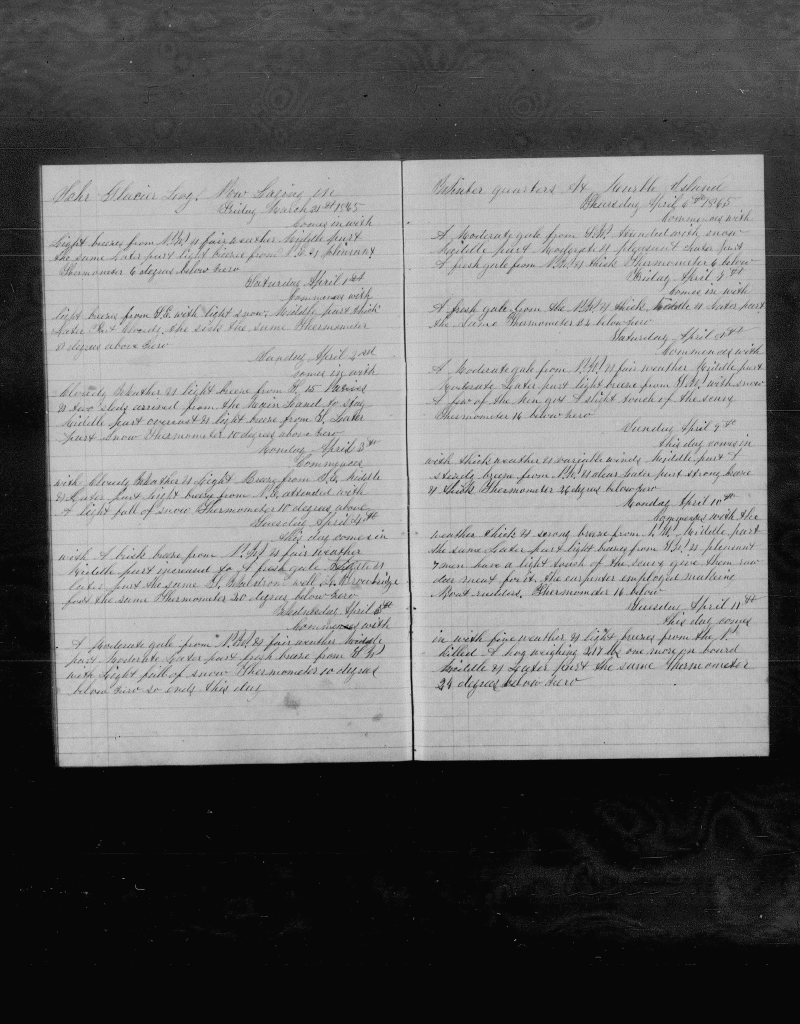 Schr Glacier Log. Now Laying in
Friday March 31st 1865
Comes in with
Light breese from N.W. & fair weather Middle part
the same Later part light breese from N.E. & plearant
Thermometer 6 degrees below zero
Saturday April 1st
Commences with
light breese from S.E. with light snow. Middle part thick
Later Part Cloudy, the ends the same Thermometer
degrees above zero
Sunday April 2nd
Comes in with
Cloudy Weather & light breese from S. 15 Natives
& two sleds arrived from the Main Land to stay
Middle part overcast & light breese from S. Later
part snow Thermometer 10 degrees above zero
Monday April 3th
Commences
with Cloudy Weather & Light Breese from S.E. Middle
& Later part light breese from N.E. attended with
A light fall of snow Thermometer 10 degrees above
Tuesday April 4th
this day comes in
with A brisk breese from N.W. & fair weather
Middle part increased to A fresh gale Middle &
later part the same
part the same Thermometer 20 degrees below zero
Wednesday April 5th
Commences with
A Moderate gale from N.W. & fair weather Middle
part Moderate Later part fresh breese from N.W.
with Light fall of snow Thermometer 10 degrees
below zero so ends this day
Winter quarters At Marble Island
Thursday April 6th 1865
Commences with
A Moderate gale from N.W. Attended with snow
Middle part Moderate & plesent Later part
A fresh gale from N.W. & thick Thermometer 6 below
Friday April 7th
Comes in with
A fresh gale from the N.W. & thick, Middle & Later part
the same Thermometer 22 below zero
Saturday April 8th
Commences with
A Moderate gale from N.W. & fair weather Middle part
Moderate Later part light breese from N.W. with snow
A few of the men got A slight touch of the scurvy
Thermometer 16 below zero
Sunday April 9th
this day comes in
with thick weather & variable winds Middle part A
steady breese from N.W. & clear Later part strong breese
& thick Thermometer 26 degrees below zero
Monday April 10th
Commences with the
weather thick & strong breese from N.W. Middle part
the same Later part light breese from N.W. & plesent
7 men have A light touch of the scurvy gave them raw
deer meat for it. the carpenter employed making
Boat rudders. Thermometer 16 below
Tuesday April 11th
this day comes
in with fine weather & light breeses from the N.
Killed A hog weighing 217 lbs one more on board
Middle & Later part the same Thermometer
24 degrees below zero